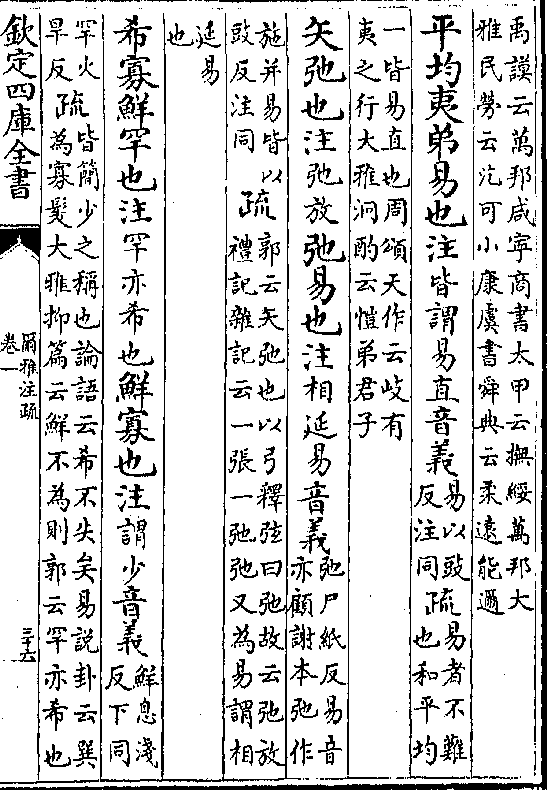 禹謨云萬邦咸寧商書太甲云撫綏萬邦大
雅民勞云汔可小康虞書舜典云柔遠能邇
平均夷弟易也注皆謂易直音義易以豉反注同疏易者不難也和平均
一皆易直也周頌天作云岐有
夷之行大雅泂酌云愷弟君子
矢弛也注弛放弛易也注相延易音義弛尸紙反易音亦顧謝本弛作
施并易皆以豉反注同疏郭云矢弛也以弓釋弦曰弛故云弛放
禮記雜記云一張一弛弛又為易謂相
延易也
希寡鮮罕也注罕亦希也鮮寡也注謂少音義鮮息淺反下同
罕火旱反疏皆簡少之稱也論語云希不失矣易說卦云巽
為寡髮大雅抑篇云鮮不為則郭云罕亦希也
欽定四庫全書
爾雅注疏
卷一
三十六